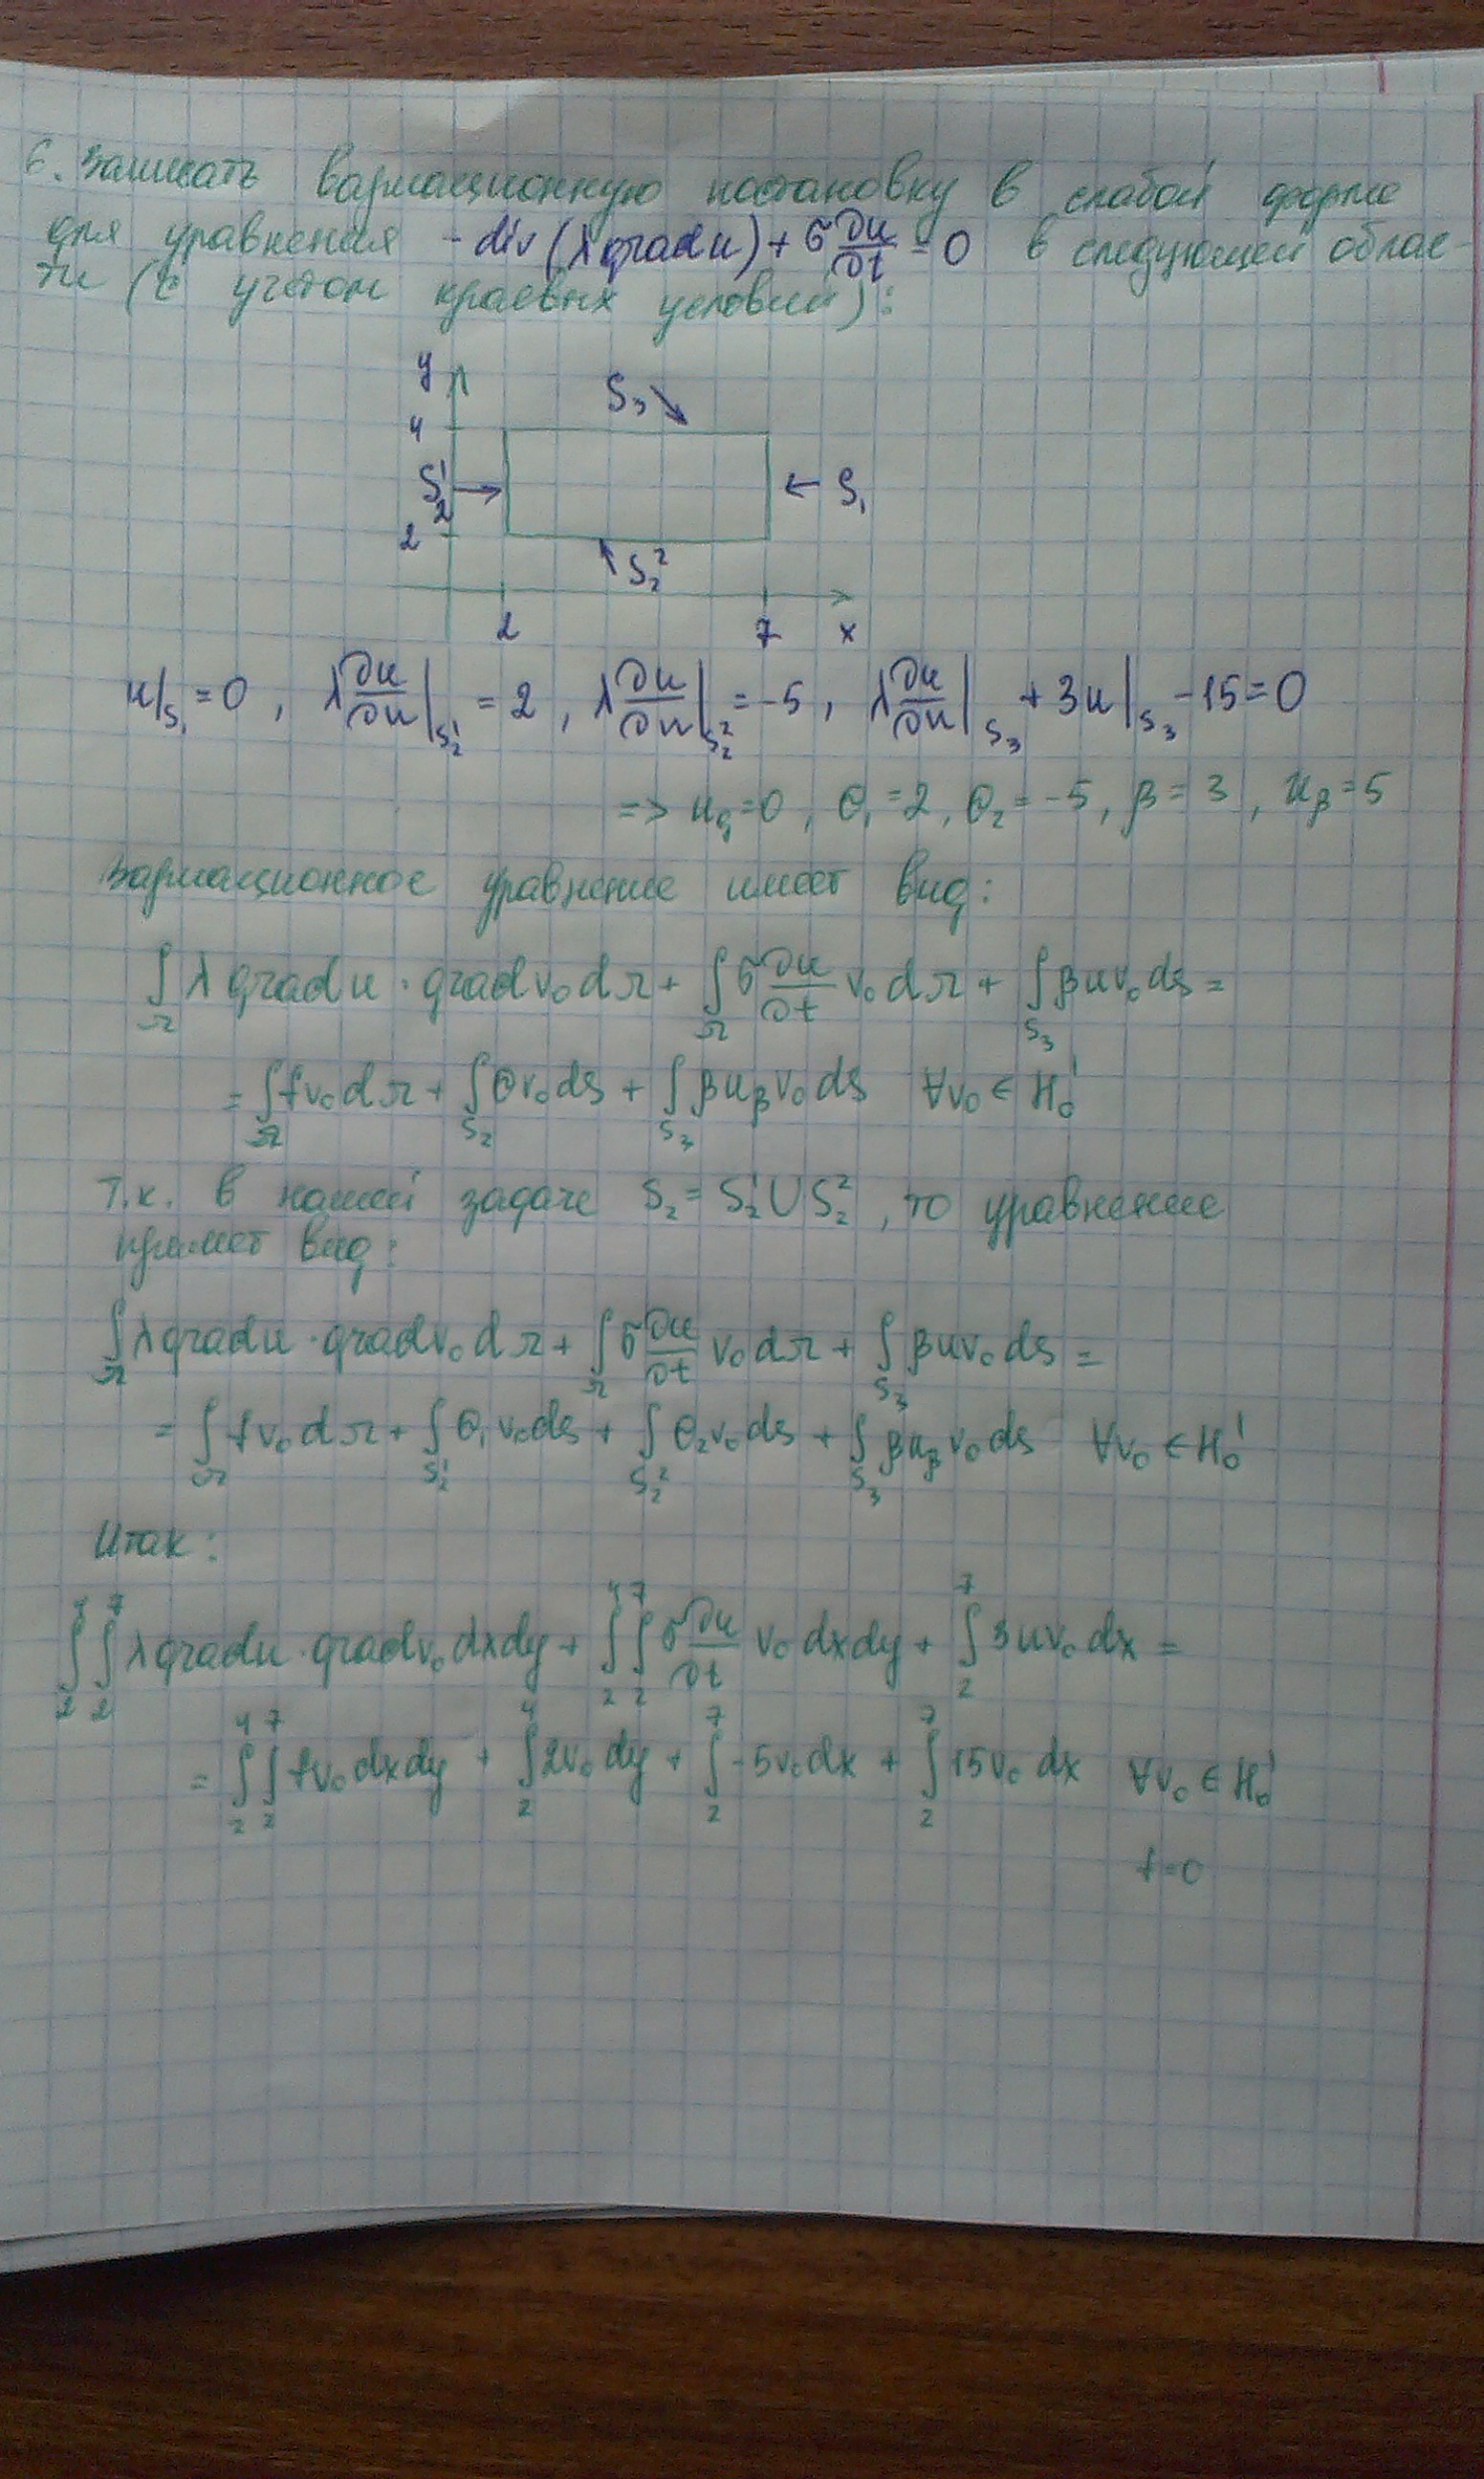 6. Записать вариационную постановку в слабой форме
для уравнения -div(λ grad u) + σ ∂u/∂t = 0 в следующей облас-
ти (с учетом краевых условий):
y
S₃
4
S₂¹
S₁
2
S₂²
2 7 x
u|S₁ = 0, λ ∂u/∂n|S₂¹ = 2, λ ∂u/∂n|S₂² = -5, λ ∂u/∂n|S₃ + 3u|S₃ - 15 = 0
=> u_g = 0, θ₁ = 2, θ₂ = -5, β = 3, u_β = 5
Вариационное уравнение имеет вид:
∫_Ω λ grad u · grad v₀ dΩ + ∫_Ω σ ∂u/∂t v₀ dΩ + ∫_S₃ β u v₀ ds =
= ∫_Ω f v₀ dΩ + ∫_S₂ θ v₀ ds + ∫_S₃ β u_β v₀ ds ∀v₀ ∈ H₀¹
Т.к. в нашей задаче S₂ = S₂¹ ∪ S₂², то уравнение
примет вид:
∫_Ω λ grad u · grad v₀ dΩ + ∫_Ω σ ∂u/∂t v₀ dΩ + ∫_S₃ β u v₀ ds =
= ∫_Ω f v₀ dΩ + ∫_S₂¹ θ₁ v₀ ds + ∫_S₂² θ₂ v₀ ds + ∫_S₃ β u_β v₀ ds ∀v₀ ∈ H₀¹
Итак:
∫₂⁴ ∫₂⁷ λ grad u · grad v₀ dxdy + ∫₂⁴ ∫₂⁷ σ ∂u/∂t v₀ dxdy + ∫₂⁷ 3 u v₀ dx =
= ∫₂⁴ ∫₂⁷ f v₀ dxdy + ∫₂⁴ 2 v₀ dy + ∫₂⁷ -5 v₀ dx + ∫₂⁷ 15 v₀ dx ∀v₀ ∈ H₀¹
f = 0